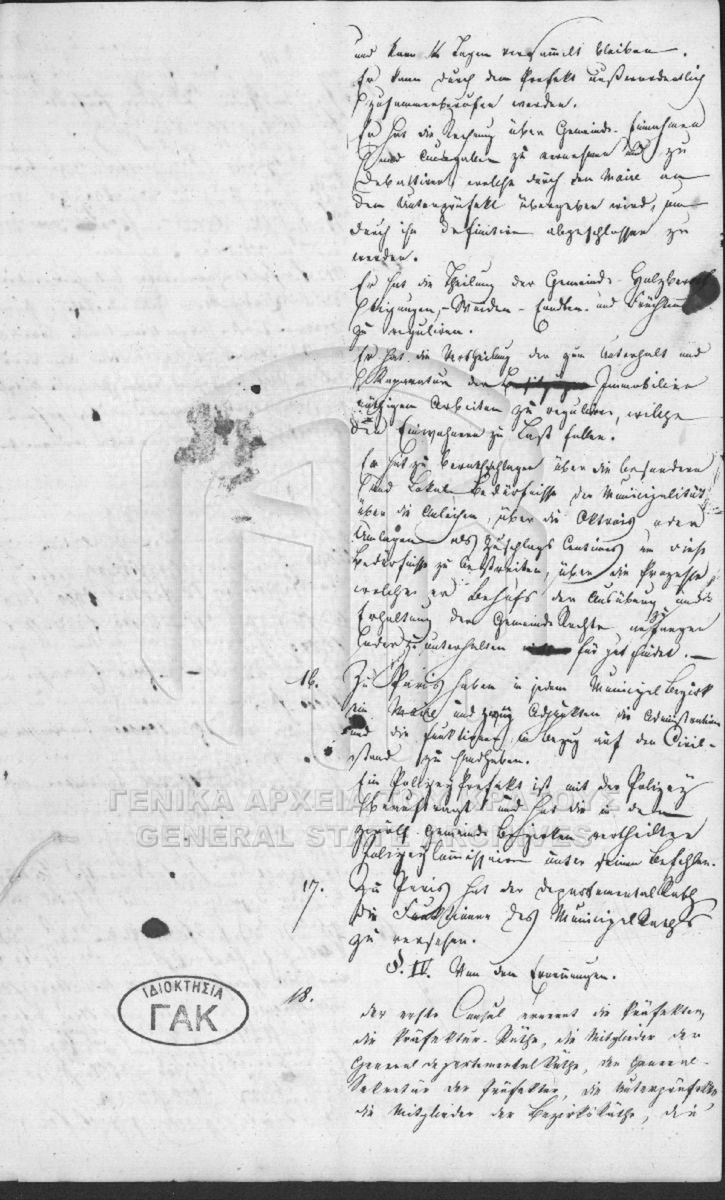 und kann 14 Tagen versammelt bleiben.
Er kann durch den Prefekt außerordentlich
zusammenberufen werden.
Er hat die Rechnung über Gemeinde-Einnahmen
und Ausgaben zu vernehmen und zu
debattiren, welche durch den Maire an
den Unterpräfekt übergeben wird, um
durch ihn definitiv abgeschlossen zu
werden.
Er hat die Theilung der Gemeinde-Holzberech
tigungen, -Weiden-Erndten- und Früchten
zu reguliren.
Er hat die Vertheilung der zum Unterhalt und
Reparatur der Immobilien
nöthigen Arbeiten zu reguliren, welche
den Einwohnern zu Last fallen.
Er hat zu berathschlagen über die besondern
und Lokal-Bedürfnisse der Municipalität
über die Anleihen, über die Oktrois oder
Umlagen als Zuschlags Centimes um diese
Bedürfnisse zu bestreiten, über die Prozesse,
welche er Behufs der Ausübung und
Erhaltung der Gemeinde Rechte anzufangen
oder zu unterhalten für gut findet.
16. Zu Paris haben in jedem Municipal Bezirk
ein Maire und zwey Adjunkten die Administration
und die Funktionen in Bezug auf den Civil-
stand zu handhaben.
Ein Polizey Prefekt ist mit der Polizey
beauftragt und hat die in den
zwölf Gemeinde Bezirken vertheilten
Polizey Commissaire unter seinen Befehlen.
17. Zu Paris hat der Departemental Rath
die Funktionen des Municipal Raths
zu versehen.
§. IV. Von den Ernennungen.
18. Der erste Consul ernennt die Präfekten,
die Präfektur-Räthe, die Mitglieder der
General Departemental Räthe, den General-
Sekretär der Präfektur, die Unterpräfekte
die Mitglieder der Bezirks Räthe, die
ΓΕΝΙΚΑ ΑΡΧΕΙΑ ΤΟΥ ΚΡΑΤΟΥΣ
GENERAL STATE ARCHIVES
ΙΔΙΟΚΤΗΣΙΑ
ΓΑΚ